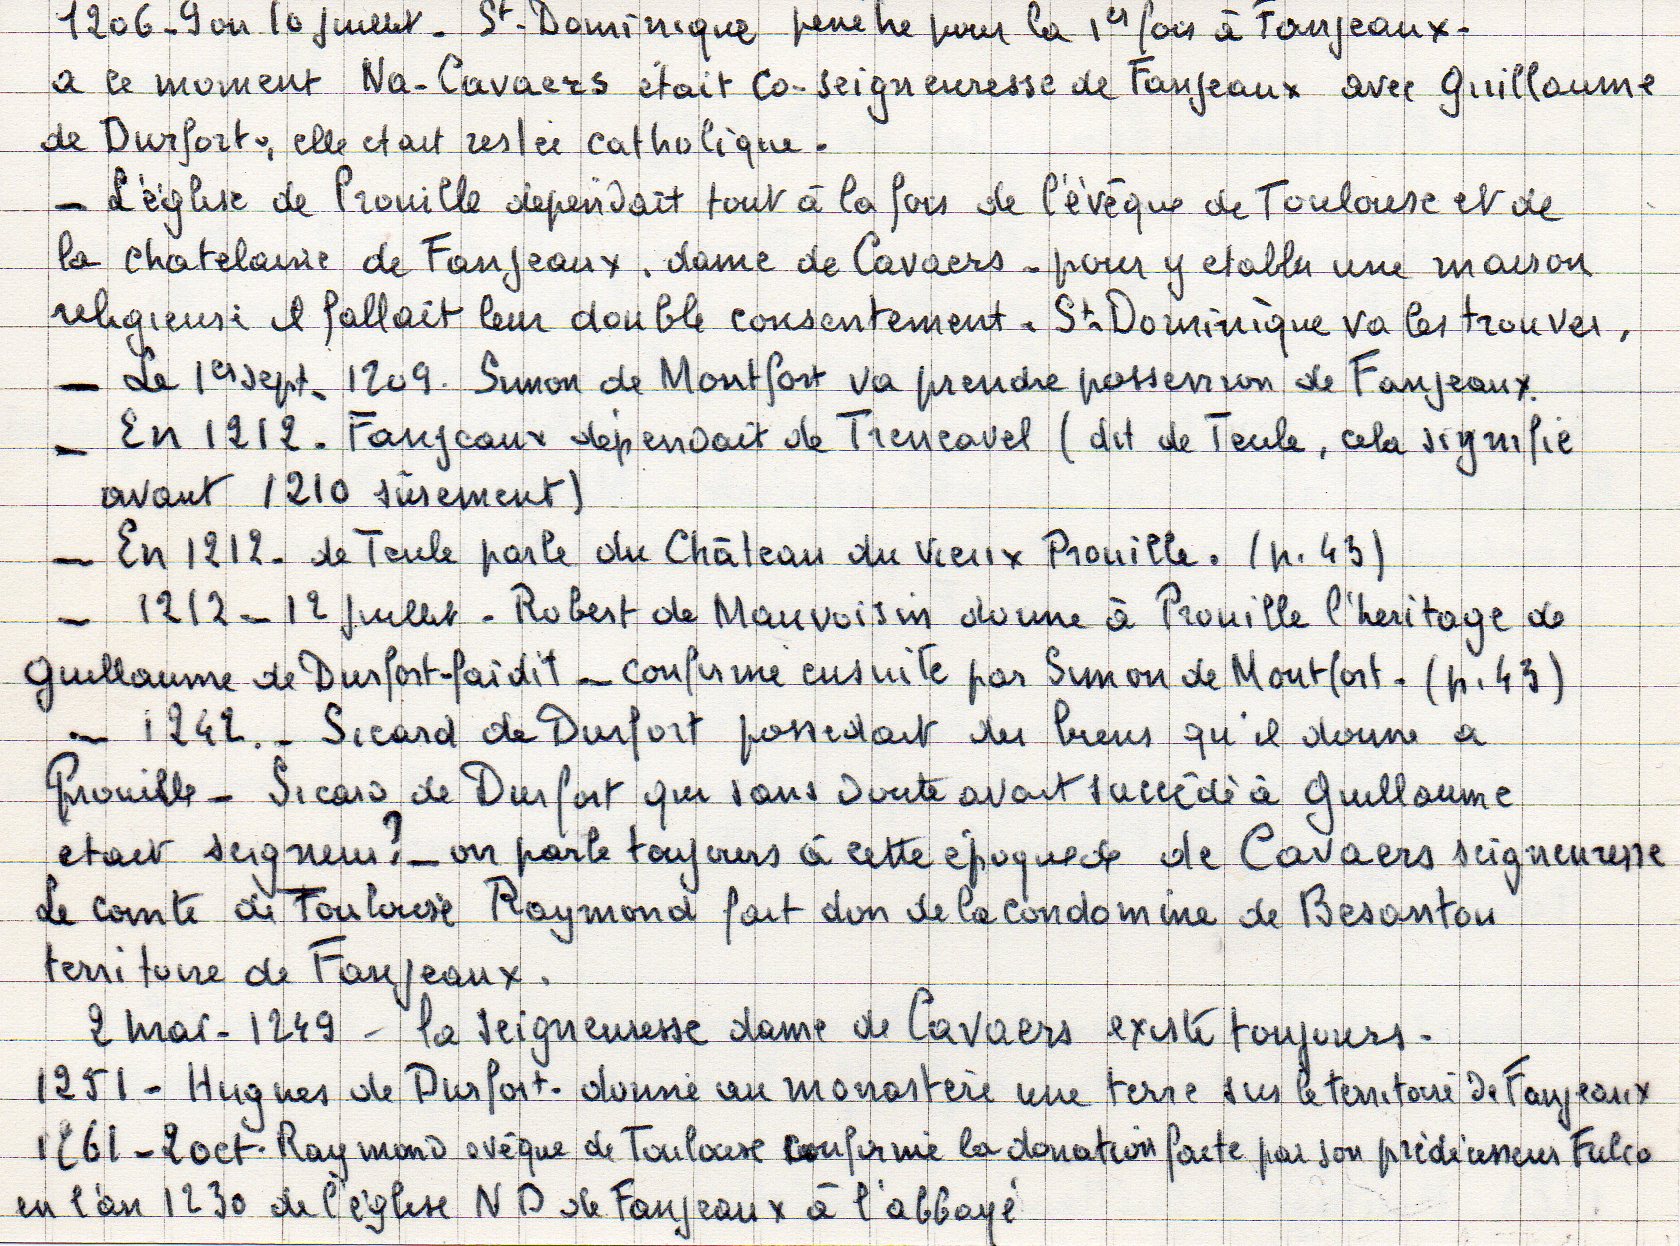 1206 - 9 ou 10 juillet - St-Dominique pénètre pour la 1er fois à Fanjeaux -
a ce moment Na-Cavaers était co-seigneuresse de Fanjeaux avec Guillaume
de Durfort, elle etait restée catholique.
- L'église de Prouille dépendait tout à la fois de l'évêque de Toulouse et de
la chatelaine de Fanjeaux. dame de Cavaers - pour y etablir une maison
religieuse il fallait leur double consentement - St-Dominique va les trouver.
- Le 1er sept. 1209. Simon de Montfort va prendre possession de Fanjeaux.
- En 1212 - Fanjeaux dépendait de Trencavel (dit de Teule, cela signifie
avant 1210 sûrement)
- En 1212 - de Teule parle du Château du vieux Prouille. (p. 43)
- 1212 - 12 juillet - Robert de Mauvoisin donne à Prouille l'heritage de
Guillaume de Durfort-faidit - confirmé ensuite par Simon de Montfort - (p. 43)
- 1242. - Sicard de Durfort possedait des biens qu'il donne a
Prouille - Sicard de Durfort qui sans doute avait succédé à Guillaume
etait seigneur? - on parle toujours à cette époque de de Cavaers seigneuresse
Le comte de Toulouse Raymond fait don de la condomine de Besantou
territoire de Fanjeaux.
2 mai - 1249 - la seigneuresse dame de Cavaers existe toujours -
1251 - Hugues de Durfort - donne au monastère une terre sur le territoire de Fanjeaux
1261 - 2 oct. Raymond evêque de Toulouse confirme la donation faite par son prédécesseur Fulco
en l'an 1230 de l'église ND de Fanjeaux à l'abbaye